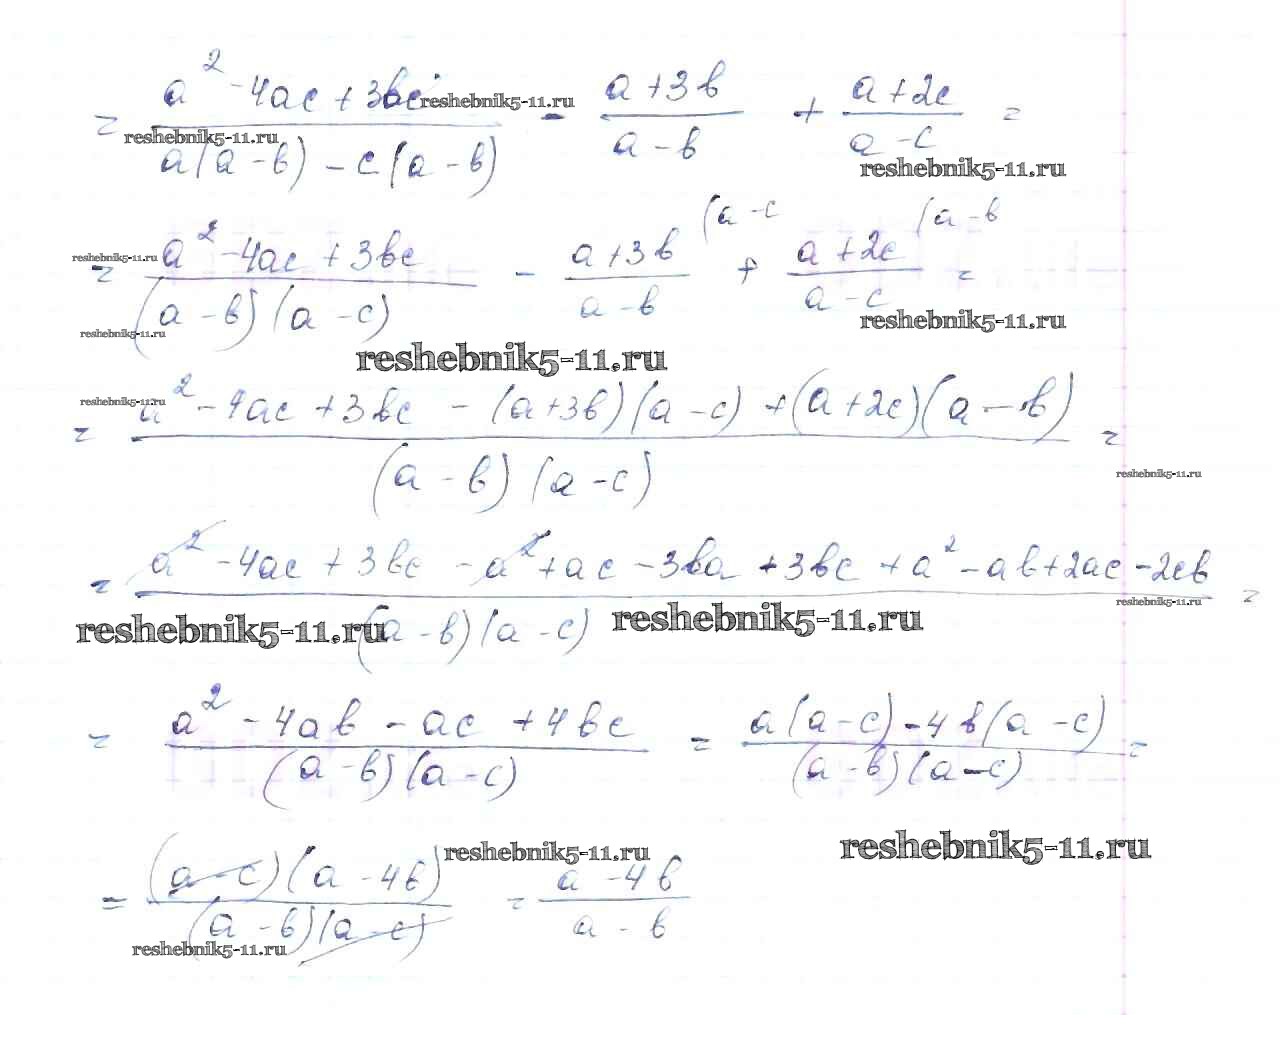 = (a² - 4ac + 3bc) / (a(a - b) - c(a - b)) - (a + 3b) / (a - b) + (a + 2c) / (a - c) =
reshebnik5-11.ru
reshebnik5-11.ru
reshebnik5-11.ru
(a - c (a - b
= (a² - 4ac + 3bc) / ((a - b)(a - c)) - (a + 3b) / (a - b) + (a + 2c) / (a - c) =
reshebnik5-11.ru
reshebnik5-11.ru
reshebnik5-11.ru
reshebnik5-11.ru
= (a² - 4ac + 3bc - (a + 3b)(a - c) + (a + 2c)(a - b)) / ((a - b)(a - c)) =
reshebnik5-11.ru
reshebnik5-11.ru
= (a² - 4ac + 3bc - a² + ac - 3ba + 3bc + a² - ab + 2ac - 2cb) / ((a - b)(a - c)) =
reshebnik5-11.ru
reshebnik5-11.ru
reshebnik5-11.ru
= (a² - 4ab - ac + 4bc) / ((a - b)(a - c)) = (a(a - c) - 4b(a - c)) / ((a - b)(a - c)) =
reshebnik5-11.ru
reshebnik5-11.ru
= ((a - c)(a - 4b)) / ((a - b)(a - c)) = (a - 4b) / (a - b)
reshebnik5-11.ru